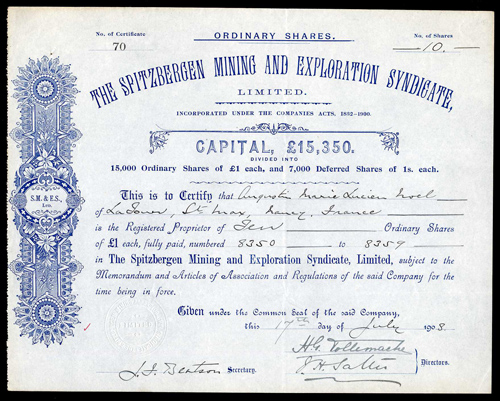 No. of Certificate
70
ORDINARY SHARES.
No. of Shares
—10.—
THE SPITZBERGEN MINING AND EXPLORATION SYNDICATE,
LIMITED.
INCORPORATED UNDER THE COMPANIES ACTS, 1882-1900.
CAPITAL, £15,350.
DIVIDED INTO
15,000 Ordinary Shares of £1 each, and 7,000 Deferred Shares of 1s. each.
This is to Certify that Augustin Marie Lucien Noel
of LaTour, St Max, Nancy, France
is the Registered Proprietor of Ten Ordinary Shares
of £1 each, fully paid, numbered 8350 to 8359
in The Spitzbergen Mining and Exploration Syndicate, Limited, subject to the
Memorandum and Articles of Association and Regulations of the said Company for the
time being in force.
S.M. & E.S.,
LTD.
Given under the Common Seal of the said Company,
this 17th day of July 1903.
H.G. Tollemache
Directors.
Secretary.